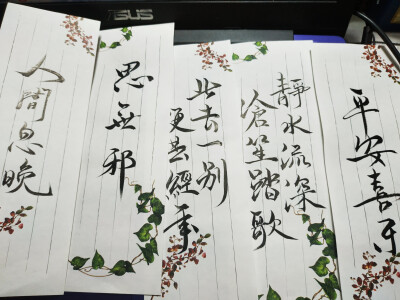 ASUS
人間忽晚
思無邪
此去一别
更是經年
靜水流深
滄笙踏歌
平安喜乐